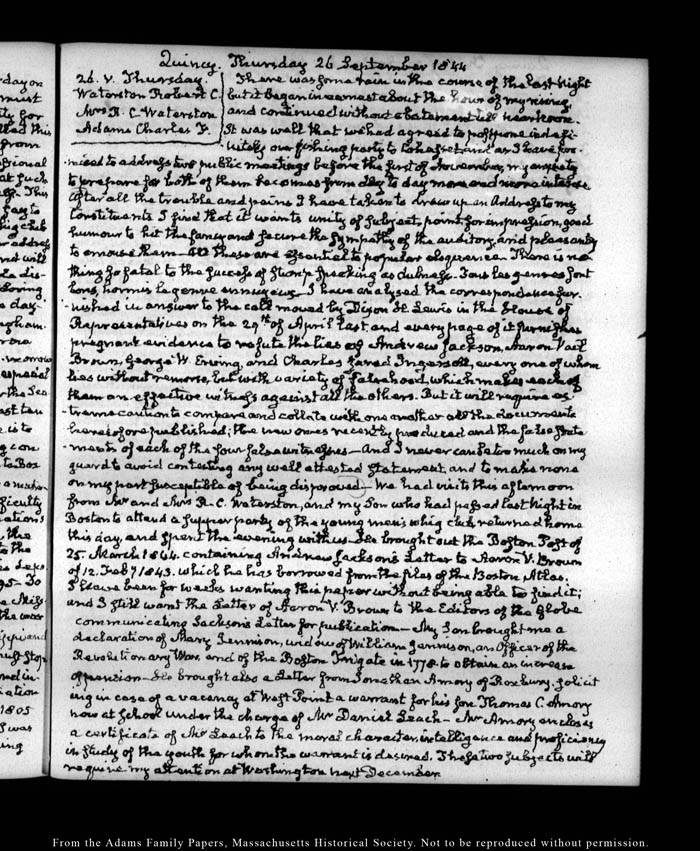 Quincy. Thursday 26 September 1844
26. V. Thursday.
Waterston Robert C.
Mrs R. C. Waterston
Adams Charles F.
There was some rain in the course of the last Night
but it began in earnest about the hour of my rising,
and continued without abatement till near Noon.
It was well that we had agreed to postpone indefi-
nitely our fishing party to Cohasset, and as I have pro-
mised to address two public meetings before the first of November, my anxiety
to prepare for both of them becomes from day to day more and more intense
After all the trouble and pains I have taken to draw up an Address to my
Constituents I find that it wants unity of subject, point for impression, good
humour to hit the fancy and secure the sympathy of the auditory, and pleasantry
to amuse them— All these are essential to popular eloquence. There is no-
thing so fatal to the success of stump speaking as dulness. Tous les genres sont
bons, hormis le genre ennuyeux. I have analysed the correspondence fur-
nished in answer to the call moved by Dixon H. Lewis in the House of
Representatives on the 29th of April last and every page of it furnishes
pregnant evidence to refute the lies of Andrew Jackson, Aaron Vail
Brown, George W. Erving, and Charles Jared Ingersoll, every one of whom
lies without remorse, but with variety of falsehood, which makes each of
them an effective witness against all the others. But it will require ex-
treme caution to compare and collate with one another all the documents
heretofore published; the new ones recently produced and the false state
ments of each of the four false witnesses— and I never can be too much on my
guard to avoid contesting any well attested statement, and to make none
on my part susceptible of being disproved— We had visits this afternoon
from Mr and Mrs R. C. Waterston, and my Son who had passed last Night in
Boston to attend a supper party of the young men's whig club, returned home
this day, and spent the evening with us. He brought out the Boston Post of
25. March 1844. containing Andrew Jackson's Letter to Aaron V. Brown
of 12. Feby 1843. which he has borrowed from the files of the Boston Atlas.
I have been for weeks wanting this paper without being able to find it;
and I still want the Letter of Aaron V. Brown to the Editors of the Globe
communicating Jackson's Letter for publication— My Son brought me a
declaration of Mary Jennison, widow of William Jennison, an Officer of the
Revolutionary War, and of the Boston frigate in 1778. to obtain an increase
of pension— He brought also a Letter from Jonathan Amory of Roxbury, solicit
ing in case of a vacancy at West Point a warrant for his son Thomas C. Amory
now at School under the charge of Mr Daniel Leach— Mr Amory encloses
a certificate of Mr Leach to the moral character, intelligence and proficiency
in study of the youth for whom the warrant is desired. These two subjects will
require my attention at Washington next December.
From the Adams Family Papers, Massachusetts Historical Society. Not to be reproduced without permission.